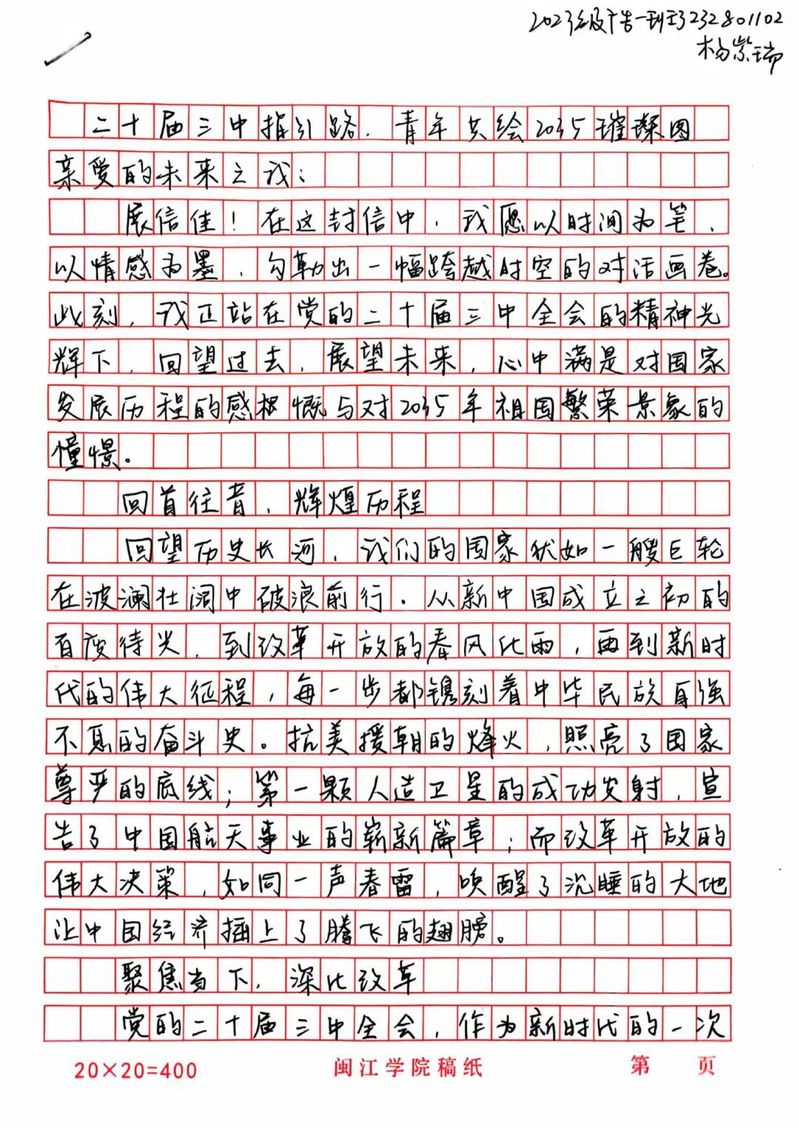 2023级广告一班3232801102
杨紫瑞
二十届三中指引路，青年共绘2035璀璨图
亲爱的未来之我：
展信佳！在这封信中，我愿以时间为笔，
以情感为墨，勾勒出一幅跨越时空的对话画卷。
此刻，我正站在党的二十届三中全会的精神光
辉下，回望过去，展望未来，心中满是对国家
发展历程的感慨与对2035年祖国繁荣景象的
憧憬。
回首往昔，辉煌历程
回望历史长河，我们的国家犹如一艘巨轮
在波澜壮阔中破浪前行。从新中国成立之初的
百废待兴，到改革开放的春风化雨，再到新时
代的伟大征程，每一步都镌刻着中华民族自强
不息的奋斗史。抗美援朝的烽火，照亮了国家
尊严的底线；第一颗人造卫星的成功发射，宣
告了中国航天事业的崭新篇章；而改革开放的
伟大决策，如同一声春雷，唤醒了沉睡的大地
让中国经济插上了腾飞的翅膀。
聚焦当下，深化改革
党的二十届三中全会，作为新时代的一次
20×20=400 闽江学院稿纸 第 页